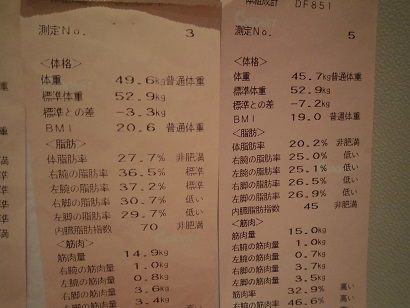 測定No. 3
<体格>
体重 49.6kg 普通体重
標準体重 52.9kg
標準との差 -3.3kg
BMI 20.6 普通体重
<脂肪>
体脂肪率 27.7% 非肥満
右腕の脂肪率 36.5% 標準
左腕の脂肪率 37.2% 標準
右脚の脂肪率 30.7% 低い
左脚の脂肪率 29.7% 低い
内臓脂肪指数 70 非肥満
<筋肉>
筋肉量 14.9kg
右腕の筋肉量 1.0kg
左腕の筋肉量 0.8kg
右脚の筋肉量 3.6kg
左脚の筋肉量 3.4kg
体組成計 DF851
測定No. 5
<体格>
体重 45.7kg 普通体重
標準体重 52.9kg
標準との差 -7.2kg
BMI 19.0 普通体重
<脂肪>
体脂肪率 20.2% 非肥満
右腕の脂肪率 25.0% 低い
左腕の脂肪率 25.1% 低い
右脚の脂肪率 26.5% 低い
左脚の脂肪率 26.9% 低い
内臓脂肪指数 45 非肥満
<筋肉>
筋肉量 15.0kg
右腕の筋肉量 1.0kg
左腕の筋肉量 0.7kg
右脚の筋肉量 3.7kg
左脚の筋肉量 3.5kg
筋肉率 32.9% 高い
右腕の筋肉率 46.6% 高い